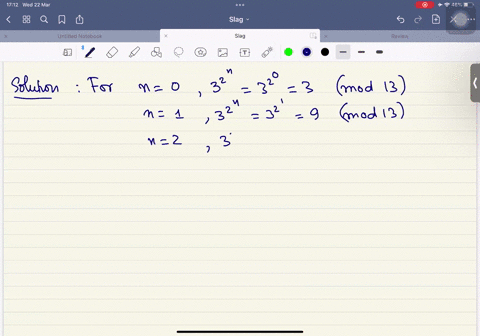 17:12 Wed 22 Mar
46%
Slag
Untitled Notebook
Slag
Review
Solution : For n = 0 , 3^{2^n} = 3^{2^0} = 3 (mod 13)
n = 1 , 3^{2^n} = 3^{2^1} = 9 (mod 13)
n = 2 , 3